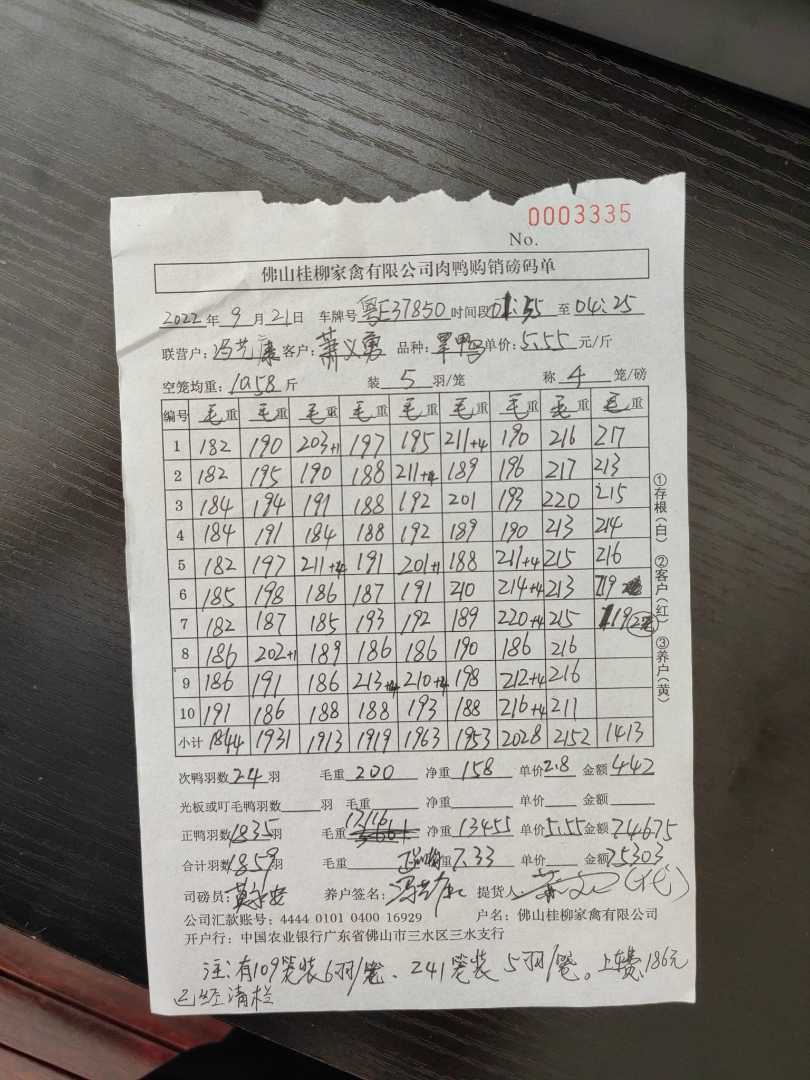 No. 0003335
佛山桂柳家禽有限公司肉鸭购销磅码单
2022年9月21日 车牌号 粤E37850 时间段 01:55 至 04:25
联营户: 冯艺康 客户: 萧义勇 品种: 旱鸭 单价: 5.55 元/斤
空笼均重: 10.58 斤 装 5 羽/笼 称 4 笼/磅
编号 毛重 毛重 毛重 毛重 毛重 毛重 毛重 毛重 毛重
1 182 190 203+1 197 195 211+4 190 216 217
2 182 195 190 188 211+4 189 196 217 213
3 184 194 191 188 192 201 193 220 215
4 184 191 184 188 192 189 190 213 214
5 182 197 211+4 191 201+1 188 211+4 215 216
6 185 198 186 187 191 210 214+4 213 219
7 182 187 185 193 192 189 220+4 215 119
8 186 202+1 189 186 186 190 186 216
9 186 191 186 213+4 210+4 198 212+4 216
10 191 186 188 188 193 188 216+4 211
小计 1844 1931 1913 1919 1963 1953 2028 2152 1413
次鸭羽数 24 羽 毛重 200 净重 158 单价 2.8 金额 442
光板或叮毛鸭羽数 羽 毛重 净重 单价 金额
正鸭羽数 1835 羽 毛重 17116 净重 13455 单价 5.55 金额 74675
合计羽数 1859 羽 毛重 重 7.33 单价 金额 75303
司磅员: 养户签名: 提货人: (代)
公司汇款账号: 4444 0101 0400 16929 户名: 佛山桂柳家禽有限公司
开户行: 中国农业银行广东省佛山市三水区三水支行
注:有109笼装6羽/笼、241笼装5羽/笼。上车费186元
已经清栏
①存根(白) ②客户(红) ③养户(黄)